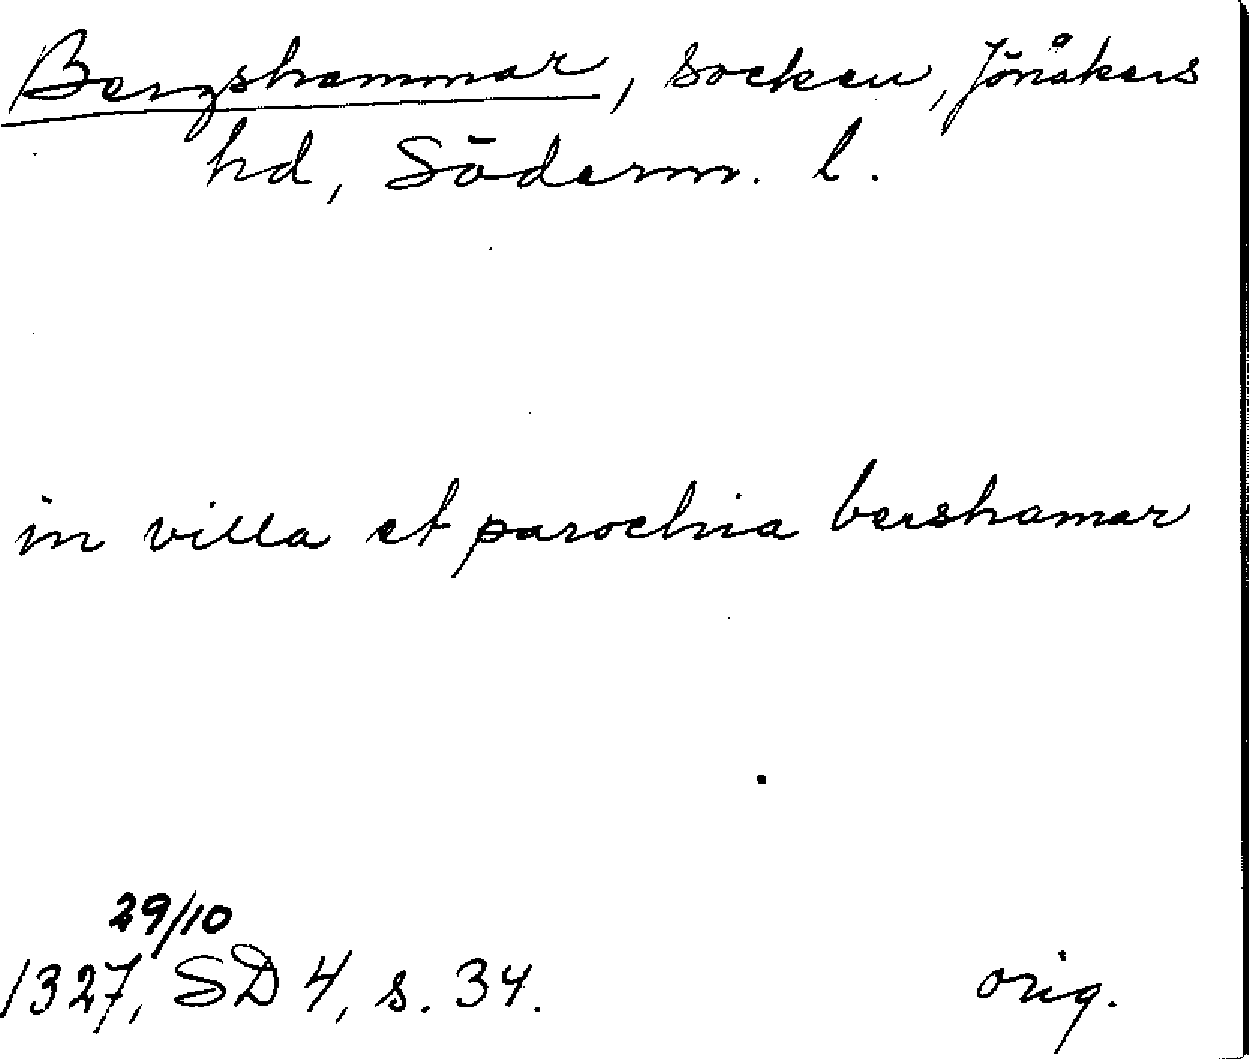 Bergshammar, socken, Jönåkers
hd, Söderm. l.
in villa et parochia bershamar
29/10
1327, SD 4, s. 34.
orig.